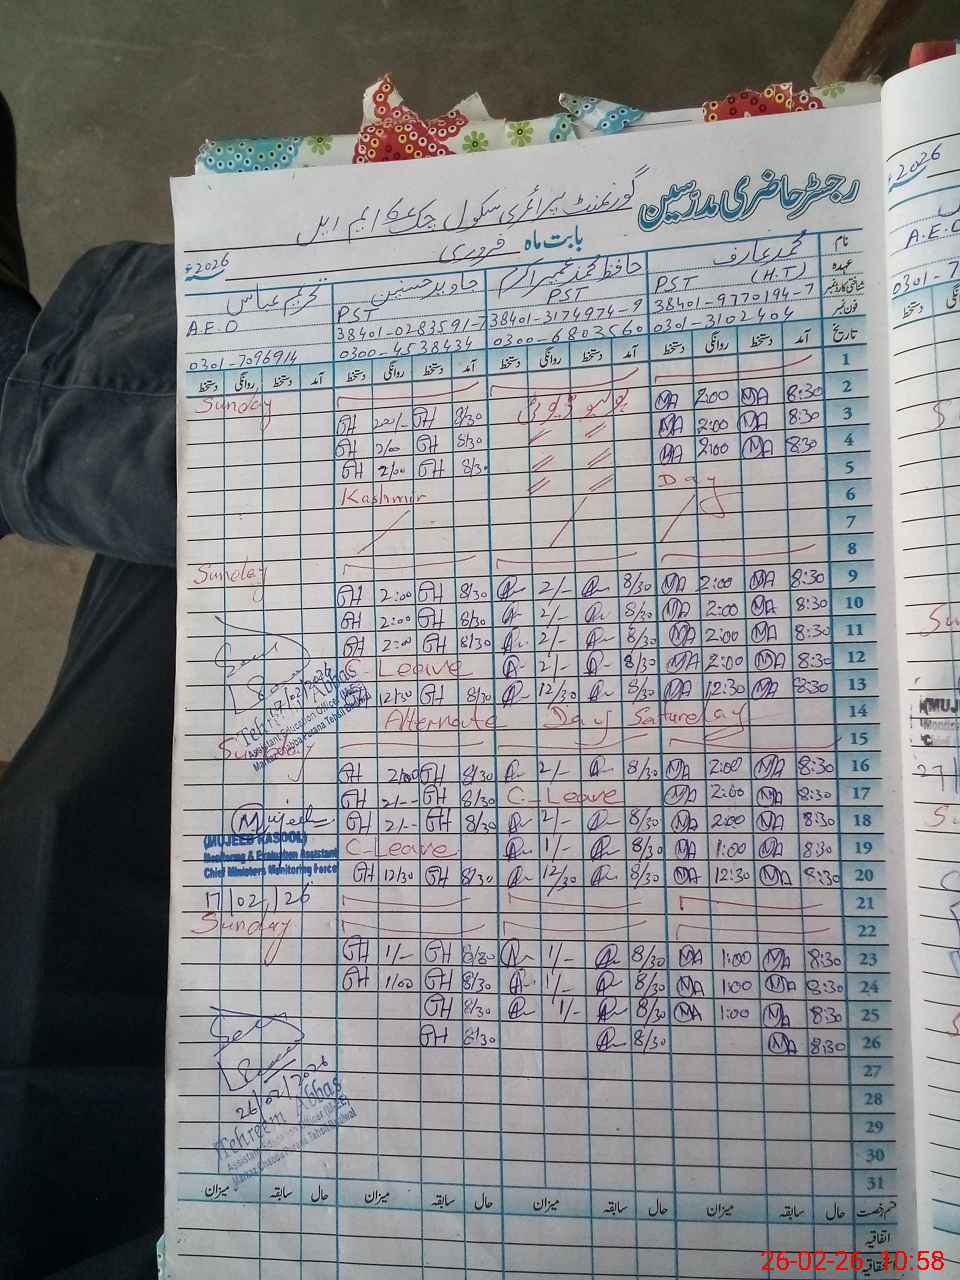 رجسٹر حاضری مدرسین
گورنمنٹ پرائمری سکول چک 6 ایم ایل
بابت ماہ فروری 2026ء
نام محمد عارف حافظ محمد عمیر اکرم جاوید حسنین تحریم عباس
عہدہ PST (H.T) PST PST A.E.O
شناختی کارڈ نمبر 38401-9770194-7 38401-3174974-9 38401-0283591-7
فون نمبر 0301-3102404 0300-6803560 0300-4538434 0301-7096914
تاریخ آمد دستخط روانگی دستخط آمد دستخط روانگی دستخط آمد دستخط روانگی دستخط آمد دستخط روانگی دستخط
1 Sunday
2 8:30 MA 2:00 MA پولیو ڈیوٹی 8/30 GH 2:00 GH
3 8:30 MA 2:00 MA 〃 〃 8/30 GH 2/00 GH
4 8:30 MA 2:00 MA 〃 〃 8/30 GH 2/00 GH
5 Kashmir Day 〃 〃
6
7
8 Sunday
9 8:30 MA 2:00 MA 8/30 2/- 8/30 GH 2:00 GH
10 8:30 MA 2:00 MA 8/30 2/- 8/30 GH 2:00 GH
11 8:30 MA 2:00 MA 8/30 2/- 8/30 GH 2:00 GH
12 8:30 MA 2:00 MA 8/30 2/- C-Leave
13 8:30 MA 12:30 MA 8/30 12/30 8/30 GH 12/30
14 Alternate Day Saturday
15 Sunday
16 8:30 MA 2:00 MA 8/30 2/- 8/30 GH 2/00 GH
17 8:30 MA 2:00 MA C-Leave 8/30 GH 2/-- GH
18 8:30 MA 2:00 MA 8/30 2/- 8/30 GH 2/-- GH
19 8:30 MA 1:00 MA 8/30 1/- C-Leave
20 8:30 MA 12:30 MA 8/30 12/30 8/30 GH 12/30 GH
21
22 Sunday
23 8:30 MA 1:00 MA 8/30 1/- 8/30 GH 1/- GH
24 8:30 MA 1:00 MA 8/30 1/- 8/30 GH 1/00 GH
25 8:30 MA 1:00 MA 8/30 1/- 8/30 GH
26 8:30 MA 8/30 8/30 GH
27
28
29
30
31
Tehreem Abbas
Assistant Education Officer
Mujeeb
(MUJEEB RASOOL)
Monitoring & Evaluation Assistant
Chief Ministers Monitoring Force
17/02/26
26/02/2026
Tehreem Abbas
Assistant Education Officer
حال سابقہ میزان حال سابقہ میزان حال سابقہ میزان حال سابقہ میزان
اتفاقیہ
2026ء
A.E.O
0301-7
دستخط
(MUJE
27/
26-02-26 10:58